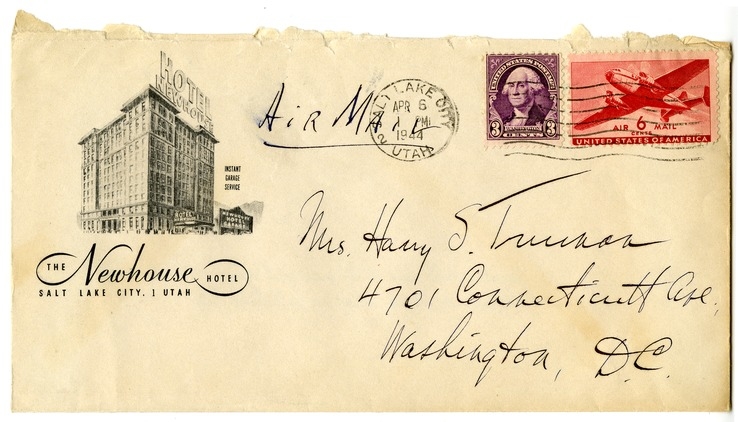 HOTEL
NEWHOUSE
INSTANT
GARAGE
SERVICE
HOTEL
NEWHOUSE
HOTEL
GARAGE
THE Newhouse HOTEL
SALT LAKE CITY, 1 UTAH
Air Ma
SALT LAKE CITY
APR 6
PM
1944
2 UTAH
UNITED STATES POSTAGE
3 WASHINGTON 3
CENTS
AIR 6 MAIL
CENTS
UNITED STATES OF AMERICA
Mrs. Harry S. Truman
4701 Connecticutt Ave.
Washington, D.C.